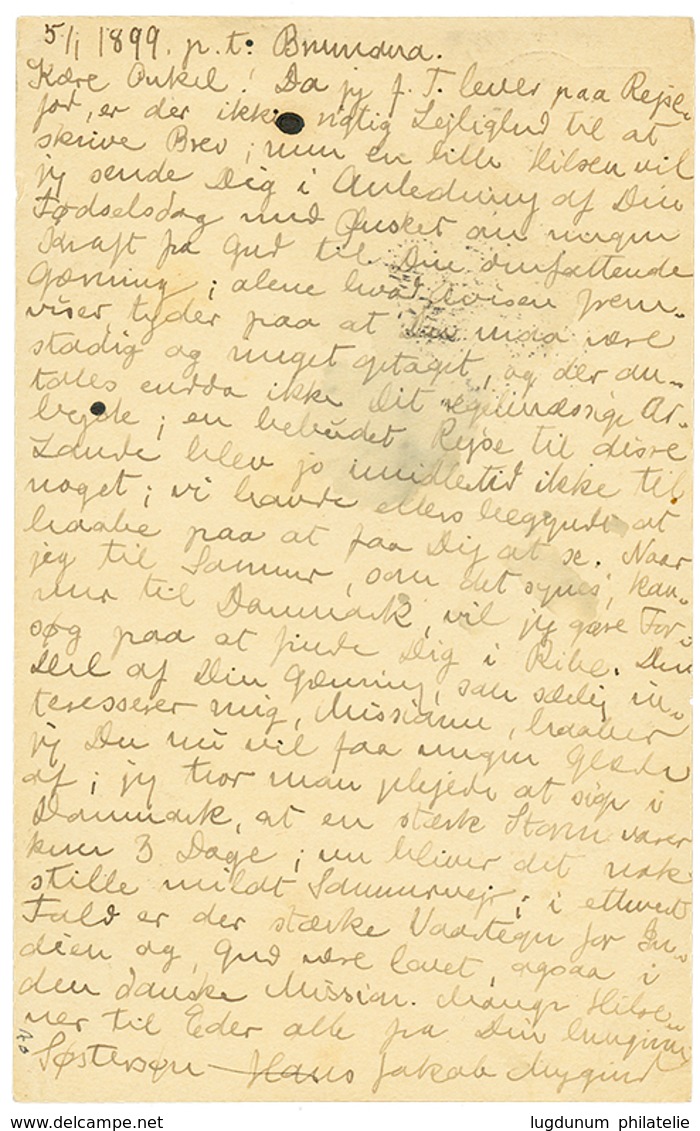 5/1 1899. p. t.
Kære Onkel! Da jeg f. T. lever paa Rejse-
fod, er der ikke rigtig Lejlighed til at
skrive Brev; men en lille Hilsen vil
jeg sende Dig i Anledning af Din
Fødselsdag med Ønsket om megen
Kraft fra Gud til Din omfattende
Gærning; alene hvad Avisen frem-
viser, tyder paa at Du maa være
stadig og meget optaget, og der om-
tales endda ikke Dit regelmæssige Ar-
bejde; en bebudet Rejse til disse
Lande blev jo imidlertid ikke til
noget; vi havde ellers begyndt at
haabe paa at faa Dig at se. Naar
jeg til Sommer, som det synes, kom-
mer til Danmark, vil jeg gøre For-
søg paa at finde Dig i Ribe. Den
Del af Din Gærning, som særlig in-
teresserer mig, Missionen, haaber
jeg Du nu vil faa megen Glæde
af; jeg tror man plejede at sige i
Danmark, at en stærk Storm varer
kun 3 Dage; nu bliver det nok
stille mildt Sommervejr; i ethvert
Fald er der stærke Vaartegn for In-
dien og, Gud være lovet, ogsaa i
den danske Mission. Mange Hilse-
ner til Eder alle fra Din hengivne
Søstersøn Hans Jakob Mygind
lugdunum philatelie